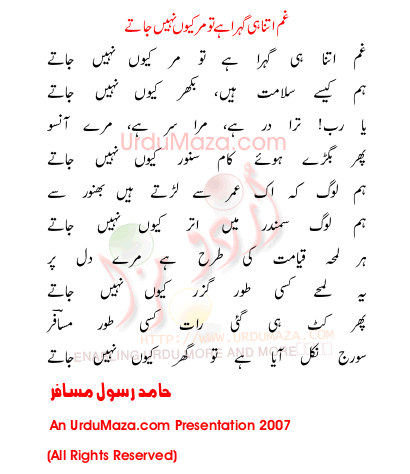 غم اتنا ہی گہرا ہے تو مر کیوں نہیں جاتے
غم اتنا ہی گہرا ہے تو مر کیوں نہیں جاتے
ہم کیسے سلامت ہیں، بکھر کیوں نہیں جاتے
یا رب! ترا در ہے، مرا سر ہے، مرے آنسو
UrduMaza.com
پھر بگڑے ہوئے کام سنور کیوں نہیں جاتے
ہم لوگ کہ اک عمر سے لڑتے ہیں بھنور سے
ہم لوگ سمندر میں اتر کیوں نہیں جاتے
ہر لمحہ قیامت کی طرح ہے مرے دل پر
یہ لمحے کسی طور گزر کیوں نہیں جاتے
پھر کٹ ہی گئی رات کسی طور مسافرؔ
WWW.URDUMAZA.COM
ENABLING URDU MORE AND MORE...
سورج نکل آیا ہے تو گھر کیوں نہیں جاتے
حامد رسول مسافر
An UrduMaza.com Presentation 2007
(All Rights Reserved)